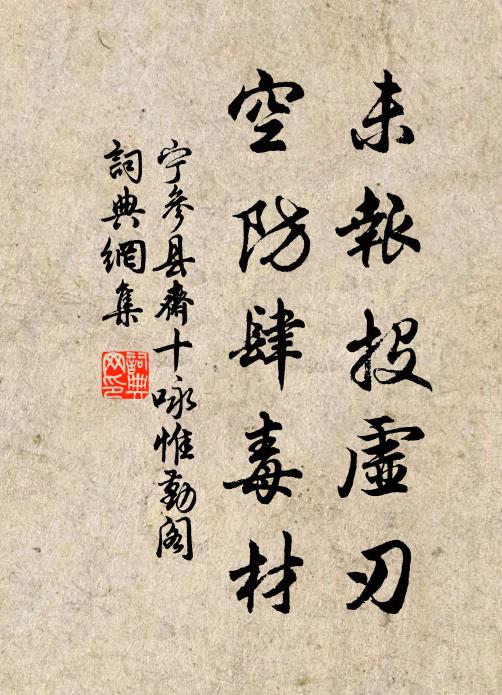 未報投虛刃
空防肆毒材
宁參县齋十咏惟勤阁
詞典網集
詞典網印